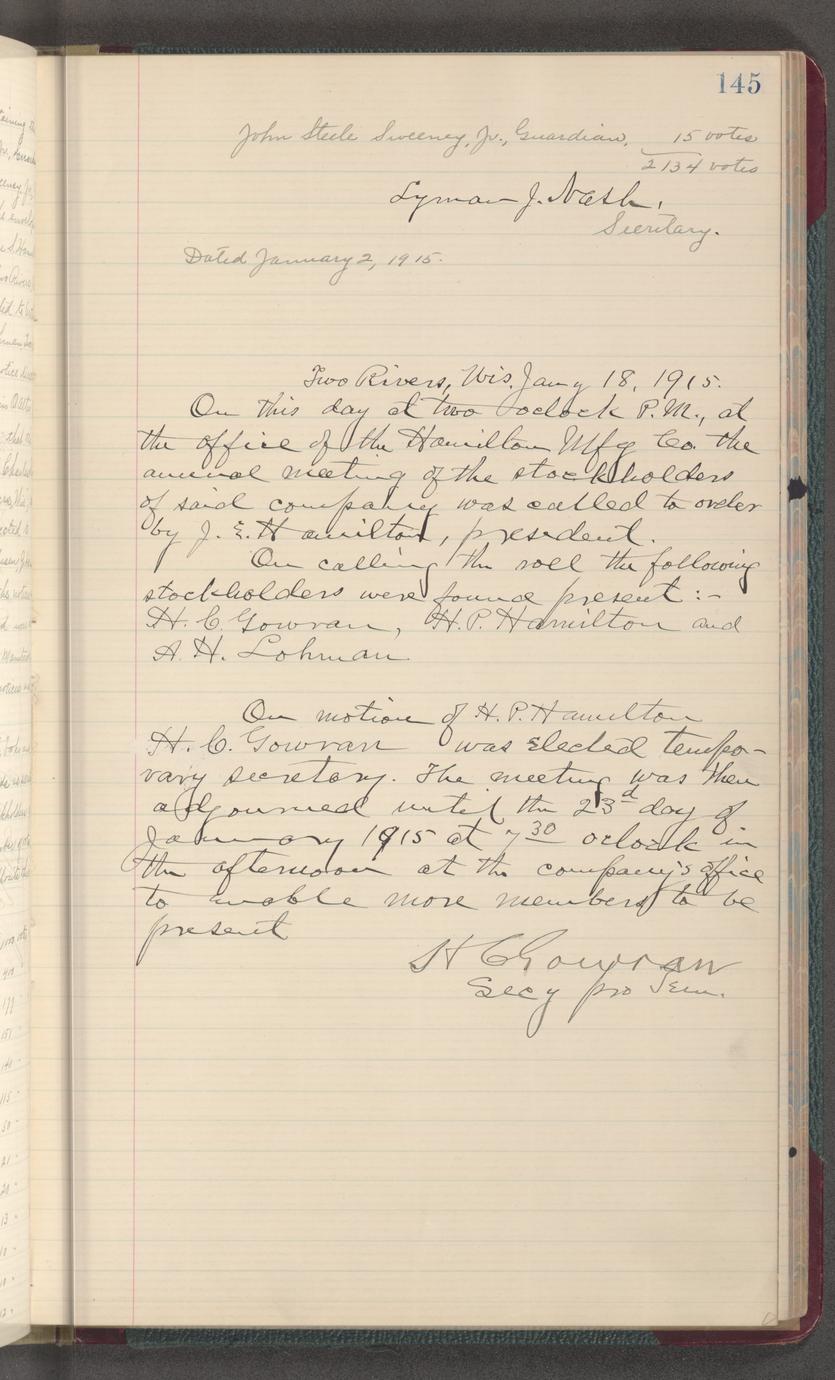 145
John Steele Sweeney, Jr., Guardian, 15 votes
2134 votes
Lyman J. Nash,
Secretary.
Dated January 2, 1915.
Two Rivers, Wis. Jany 18, 1915.
On this day at two oclock P.M., at
the office of the Hamilton Mfg Co. the
annual meeting of the stockholders
of said company was called to order
by J. E. Hamilton, president.
On calling the roll the following
stockholders were found present :-
H. C. Gowran, H. P. Hamilton and
A. H. Lohman
On motion of H. P. Hamilton
H. C. Gowran was Elected tempo-
rary secretary. The meeting was then
adjourned until the 23d day of
January 1915 at 7 30 oclock in
the afternoon at the company's office
to enable more members to be
present
H C Gowran
Secy pro Tem.